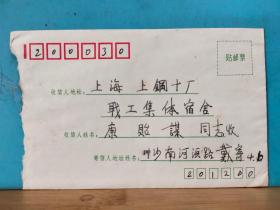 200030
贴邮票
收信人地址: 上海 上钢十厂
战工集体宿舍
收信人姓名: 康贻谋 同志收
寄信人地址姓名: 川沙南河浜路 戴
201200